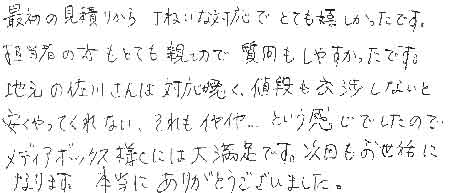 最初の見積りから丁ねいな対応でとても嬉しかったです。
担当者の方もとても親切で質問もしやすかったです。
地元の佐川さんは対応悪く、値段も交渉しないと
安くやってくれない、それもイヤイヤ…という感じでしたので
メディアボックス様には大満足です。次回もお世話に
なります。本当にありがとうございました。